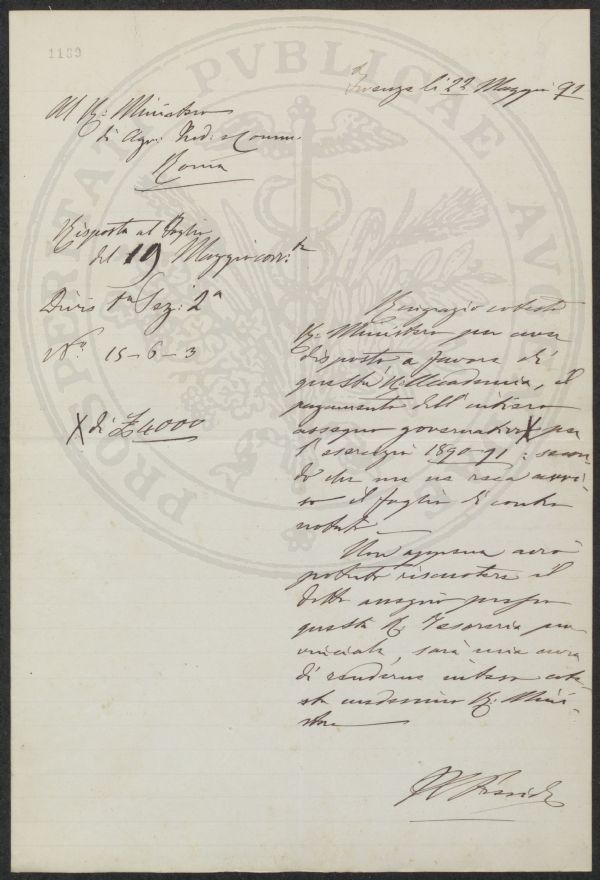 1189
PROSPERITATI PVBLICAE AVG
Firenze lì 22 Maggio 91
Al R. Ministero
di Agr. Ind. e Comm.
Roma
Risposta al Foglio
del 19 Maggio corr.te
Divis 1a Sez: 2a
N.o 15-6-3
X di £ 4000
Ringrazio codesto
R. Ministero per aver
disposto a favore di
questa R. Accademia, il
pagamento dell'intiero
assegno governativo X per
l'esercizio 1890-91: secon-
do che me ne reca avvi-
so il foglio di contro
notato.
Non appena avrò
potuto riscuotere il
detto assegno presso
questa R. Tesoreria pro-
vinciale, sarà mia cura
di renderne inteso code-
sto medesimo R. Mini-
stero
Il Presid